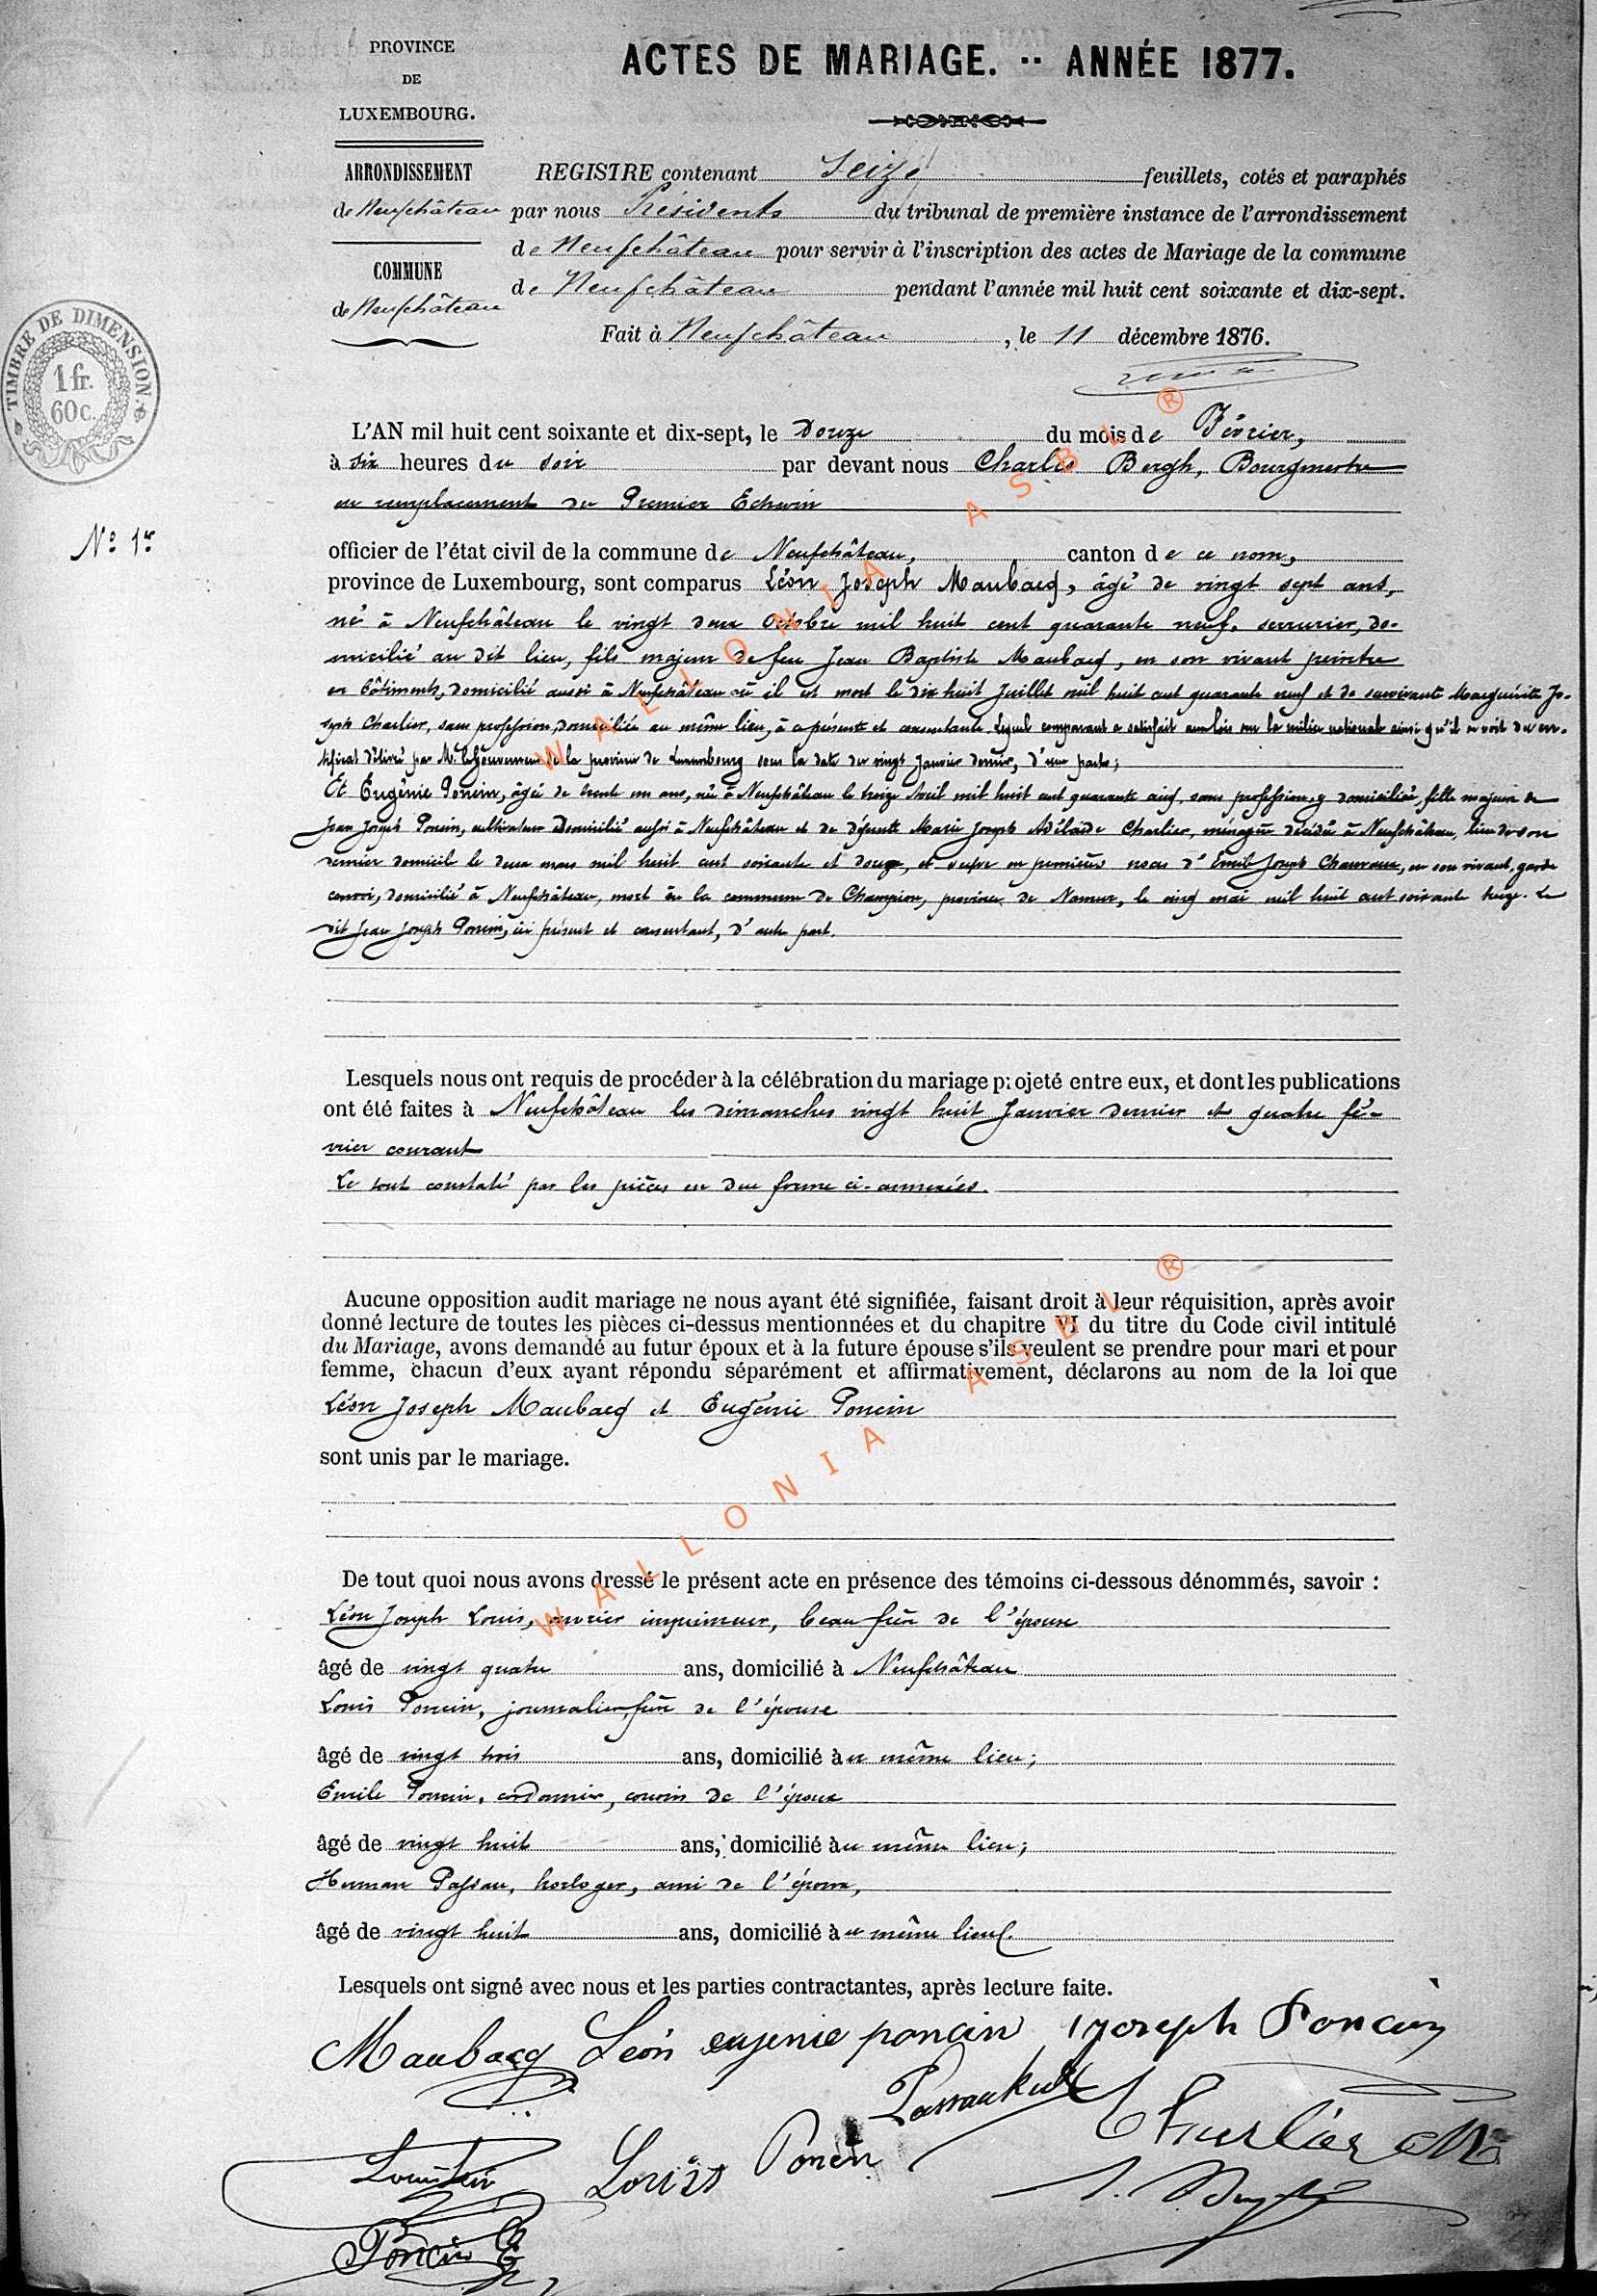 PROVINCE
DE
LUXEMBOURG.
ARRONDISSEMENT
de Neufchâteau
COMMUNE
de Neufchâteau
ACTES DE MARIAGE. -- ANNÉE 1877.
REGISTRE contenant Seize feuillets, cotés et paraphés
par nous Présidents du tribunal de première instance de l'arrondissement
de Neufchâteau pour servir à l'inscription des actes de Mariage de la commune
de Neufchâteau pendant l'année mil huit cent soixante et dix-sept.
Fait à Neufchâteau, le 11 décembre 1876.
TIMBRE DE DIMENSION.
1 fr.
60 c.
No 1er
L'AN mil huit cent soixante et dix-sept, le Douze du mois de Février,
à six heures du soir par devant nous Charles Bergh, Bourgmestre
en remplacement du Premier Echevin
officier de l'état civil de la commune de Neufchâteau, canton de ce nom,
province de Luxembourg, sont comparus Léon Joseph Maubacq, âgé de vingt sept ans,
né à Neufchâteau le vingt deux Octobre mil huit cent quarante neuf, serrurier, do-
micilié au dit lieu, fils majeur de feu Jean Baptiste Maubacq, en son vivant peintre
en bâtiments, domicilié aussi à Neufchâteau où il est mort le dix huit Juillet mil huit cent quarante neuf et de survivante Marguérite Jo-
seph Charlier, sans profession, domiciliée au même lieu, à ce présente et consentante. Lequel comparant a satisfait aux lois sur la milice nationale ainsi qu'il se voit du cer-
tificat délivré par Mr. le Gouverneur de la province de Luxembourg sous la date du vingt Janvier dernier, d'une part;
Et Eugénie Poncin, âgée de trente un ans, née à Neufchâteau le treize Avril mil huit cent quarante cinq, sans profession, y domiciliée, fille majeure de
Jean Joseph Poncin, cultivateur domicilié aussi à Neufchâteau et de défunte Marie Joseph Adélaïde Charlier, ménagère décédée à Neufchâteau, lieu de son
dernier domicile le deux mars mil huit cent soixante et douze, et veuve en premières noces d'Emile Joseph Chauvaux, en son vivant, garde
convoi, domicilié à Neufchâteau, mort en la commune de Champion, province de Namur, le cinq mai mil huit cent soixante treize. Le
dit Jean Joseph Poncin, ici présent et consentant, d'autre part.
Lesquels nous ont requis de procéder à la célébration du mariage projeté entre eux, et dont les publications
ont été faites à Neufchâteau les dimanches vingt huit Janvier dernier et quatre fé-
vrier courant
Le tout constaté par les pièces en due forme ci-annexées.
Aucune opposition audit mariage ne nous ayant été signifiée, faisant droit à leur réquisition, après avoir
donné lecture de toutes les pièces ci-dessus mentionnées et du chapitre VI du titre du Code civil intitulé
du Mariage, avons demandé au futur époux et à la future épouse s'ils veulent se prendre pour mari et pour
femme, chacun d'eux ayant répondu séparément et affirmativement, déclarons au nom de la loi que
Léon Joseph Maubacq et Eugénie Poncin
sont unis par le mariage.
De tout quoi nous avons dressé le présent acte en présence des témoins ci-dessous dénommés, savoir :
Léon Joseph Louis, ouvrier imprimeur, beau frère de l'épouse
âgé de vingt quatre ans, domicilié à Neufchâteau
Louis Poncin, journalier, frère de l'épouse
âgé de vingt trois ans, domicilié au même lieu;
Emile Poncin, cordonnier, cousin de l'époux
âgé de vingt huit ans, domicilié au même lieu;
Herman Passau, horloger, ami de l'époux,
âgé de vingt huit ans, domicilié au même lieu.
Lesquels ont signé avec nous et les parties contractantes, après lecture faite.
Maubacq Léon eugenie poncin Joseph Poncin
Charlier
Louis Poncin
Poncin E
WALLONIA ASBL ®
WALLONIA ASBL ®